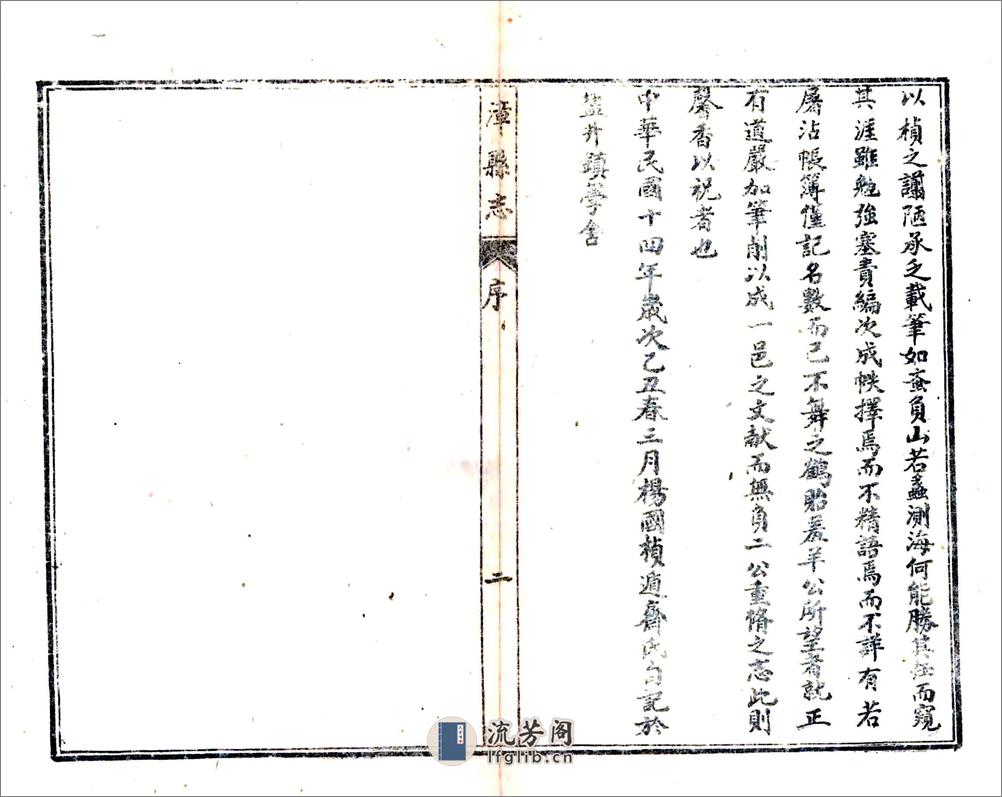 以楨之謭陋承乏載筆如蚉負山若蠡測海何能勝其任而窺
其涯雖勉強塞責編次成帙擇焉而不精語焉而不詳有若
屠沽帳簿僅記名數而已不舞之鶴貽羞羊公所望者就正
有道嚴加筆削以成一邑之文献而無負二公重脩之志此則
馨香以祝者也
中華民國十四年歲次乙丑春三月楊國楨遁齋氏自記於
盐井鎮學舍
漳縣志
序
二
流芳阁
lfglib.cn